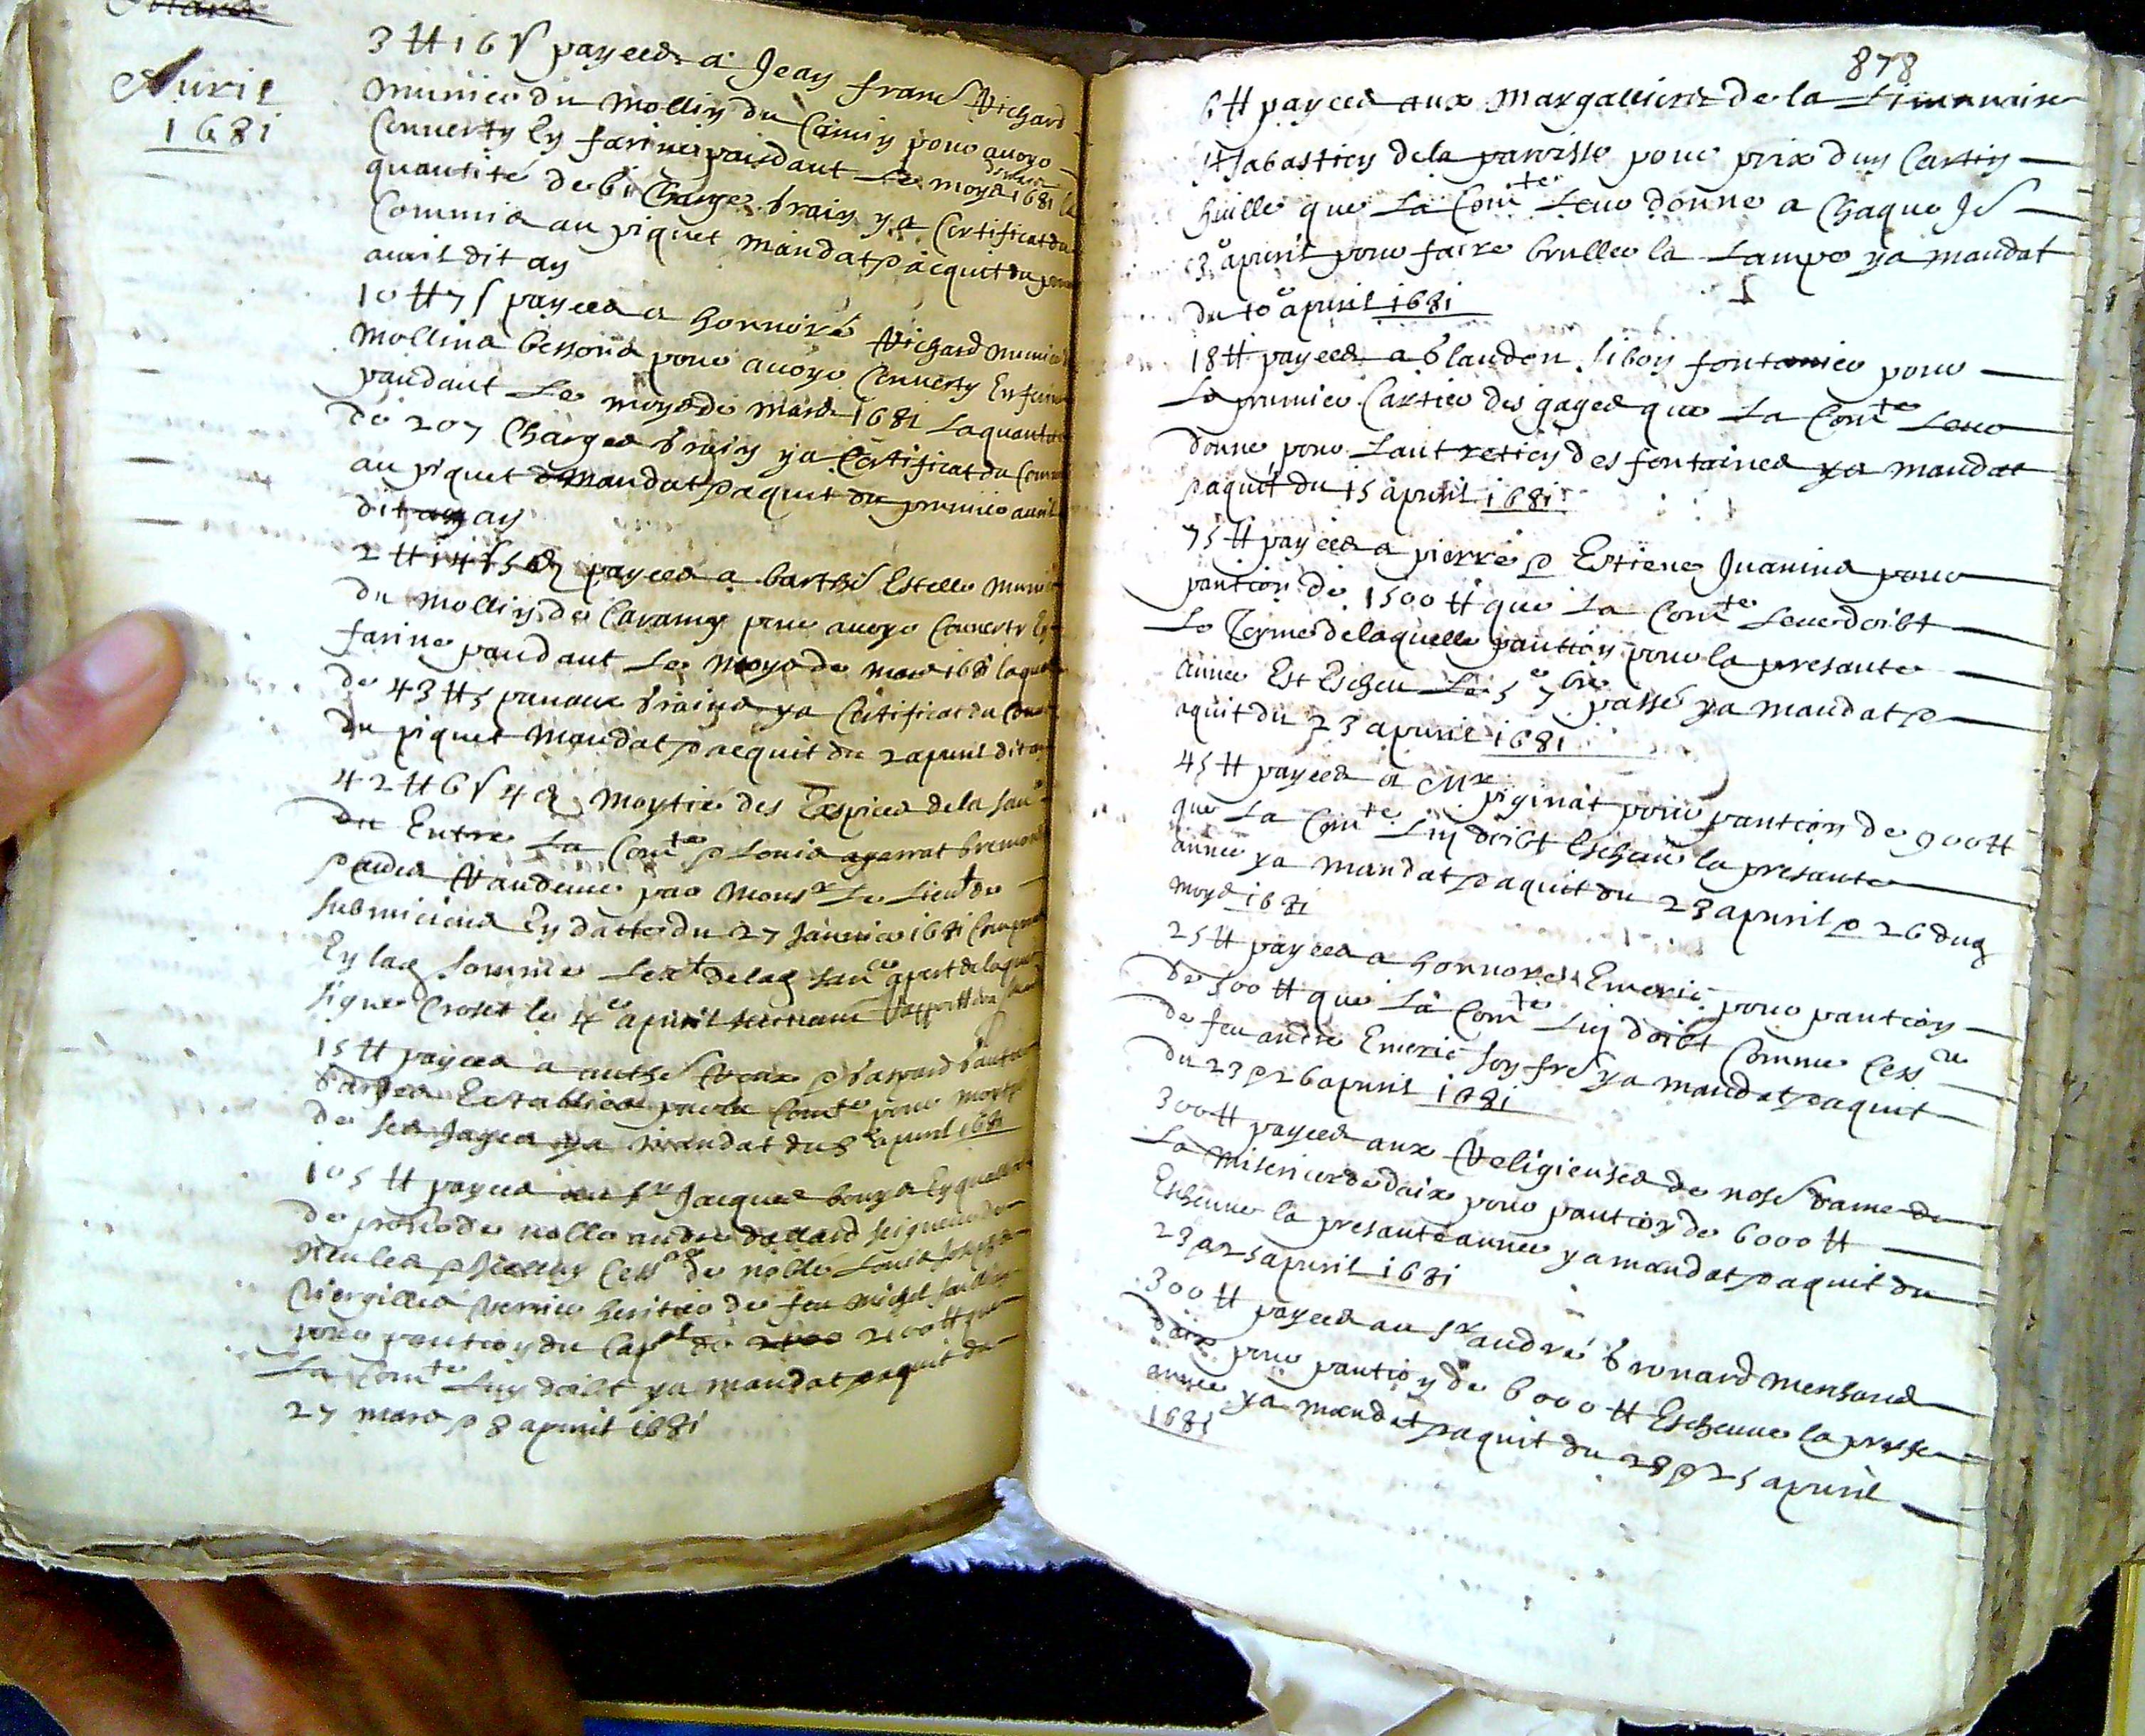 Mars
Avril
1681
3 tt 16 s payees a Jean frans Richard
munier du mollin du Camin pour avoyr
Converty en farine paudant Le moys 1681 la
quantité de 61 Charges brain y a Certificat du
Commis au piquet mandat p acquit du
avril dit an
10 tt 7 s payees a honnoré Richard munier
mollins bessons pour avoyr Converty En farine
paudant Le moys de mars 1681 La quantité
de 207 Charges brain y a Certificat du Commis
au piquet mandat p aquit du premier avril
dit an
2 tt 14 s 5 d payees a barthe Estelle munier
du mollin de Caramy pour avoyr Converty En
farine paudant Le moys de mars 1681 la quantité
de 43 tt 5 panaux brains y a Certificat du Commis
du piquet mandat p acquit du 2 apvril dit an
42 tt 6 s 4 d moytie des Espices de la san
du Entre La Comte p Louis
p Rendeue par Monsr Le Lieut de
submicions En datte du 27 Janvier 1681 Compris
En lad somme Lext de lad sance
signe Croset le 4e apvril
15 tt payees a anthe p Gaspard
Establies par la Comte pour
de ses gages y a mandat du 8e apvril 1681
105 tt payees au sr Jacques bouys En
de noble andre seigneur de
Cess de noble Louis Joseph
heritier de feu michel
pour pantion du Capal de 2100 tt que
La Comte Luy doibt y a mandat p aquit du
27 mars p 8 apvril 1681
878
6 tt payees aux Margalliers de la Luminaire
St Sabastien de la parroisse pour prix d un Cartin
huille que La Comte Leur donne a Chaque Je
3e apvril pour faire bruller la Lampe y a mandat
du 10e apvril 1681
18 tt payees a Glauden Sibon fontanier pour
Le premier Cartier des gages que La Comte Leur
donne pour Lautretien des fontaines y a mandat
p aquit du 15 apvril 1681
75 tt payees a pierre p Estiene Juanins pour
pantion de 1500 tt que La Comte Leur doibt
Le Terme de laquelle pantion pour la presante
annee Est Escheu Le 5e 7bre passé y a mandat p
aquit du 23 apvril 1681
45 tt payees a Mr piginat pour pantion de 900 tt
que La Comte Luy doibt Escheue la presante
annee y a mandat p aquit du 23 apvril p 26 dud
moys 1681
25 tt payees a honnore Emeric pour pantion
de 500 tt que La Comte Luy doibt Comme Cessre
de feu andre Emeric son fre y a mandat p aquit
du 23 p 26 apvril 1681
300 tt payees aux Religieuses de nose dame de
La misericorde daix pour pantion de 6000 tt
Escheue la presante annee y a mandat p aquit du
23 p 25 apvril 1681
300 tt payees au sr andré Gronard
daix pour pantion de 6000 tt Escheue la presante
annee y a mandat p aquit du 28 p 25 apvril
1681